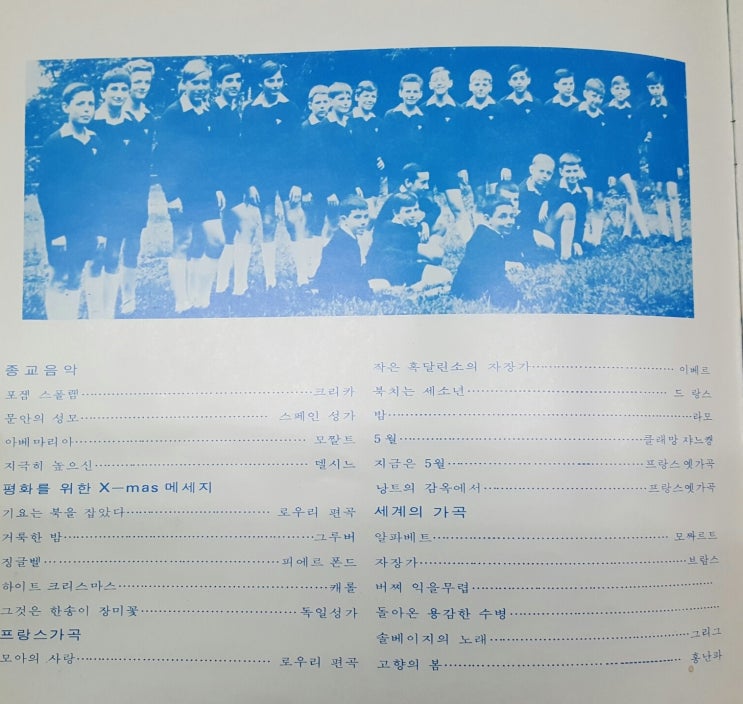 종교음악
포젬 스폴렘 크리카
문안의 성모 스페인 성가
아베마리아 모짤트
지극히 높으신 델시드
평화를 위한 X—mas 메세지
기요는 북을 잡았다 로우리 편곡
거룩한 밤 그루버
징글벨 피에르 폰드
하이트 크리스마스 캐롤
그것은 한송이 장미꽃 독일성가
프랑스가곡
모아의 사랑 로우리 편곡
작은 흑달린소의 자장가 이베르
북치는 세소년 드 랑스
밤 라모
5월 클래망 쟈느켕
지금은 5월 프랑스옛가곡
낭트의 감옥에서 프랑스옛가곡
세계의 가곡
알파베트 모짜르트
자장가 브람스
버찌 익을무렵
돌아온 용감한 수병
솔베이지의 노래 그리그
고향의 봄 홍난파